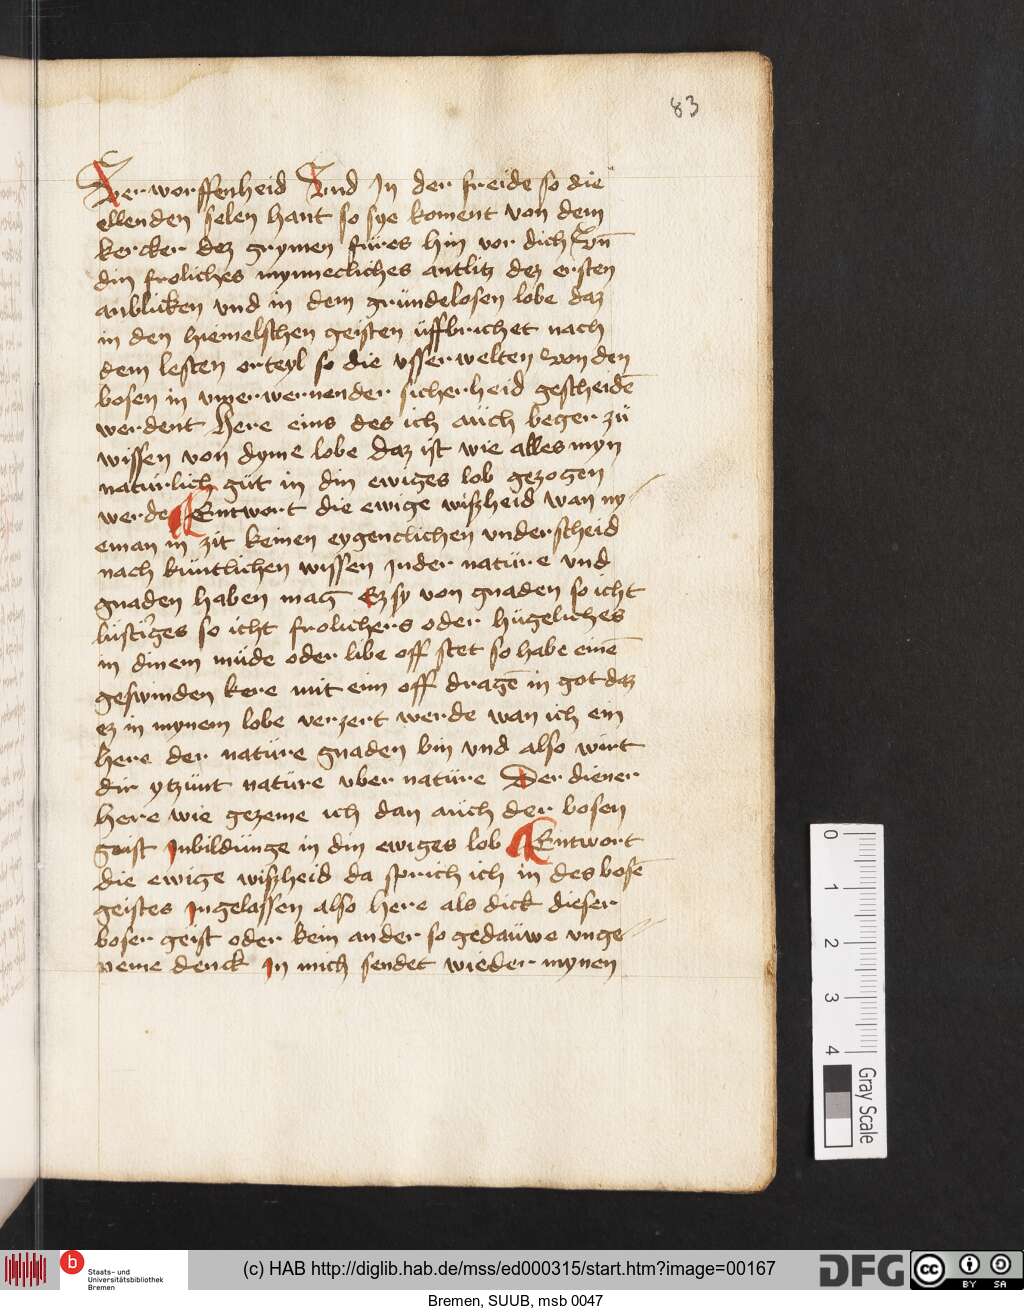 83
Verworffenheid Vnd In der freide so die
ellenden selen hant so sye koment von dem
kercker dez grymen fures hin vor dich Vn̄
din froliches mynnecliches antlitz dez ersten
anblicken vnd in dem gründelosen lobe daz
in den hiemelschen geisten uffbrichet nach
dem lesten orteyl so die vsserwelten von den
bosen in vwerwernender sicherheid gescheidē
werdent Here eins des ich aüch beger zü
wissen von dyme lobe daz ist wie alles myn
natürlich güt in din ewiges lob gezogen
werde Entwort die ewige wiszheid wan ny
eman in zit keinen eygenclichen vnderscheid
nach küntlichen wissen Inder natüre vnd
gnaden haben mag Ez sy von gnaden so icht
lustiges so icht frolichers oder hügeliches
in dinem müde oder libe off stet so habe einē
geswinden kere mit eim off dragē in got daz
ez in mynem lobe verzert werde wan ich ein
here der natüre gnaden bin vnd also wirt
dir ytzünt natüre vber natüre Der diener
here wie gezeme ich dan aüch der bosen
geist Inbildünge in din ewiges lob Entwort
die ewige wiszheid da sprich ich in des bosē
geistes Ingelassen also here als dick dieser
boser geist oder kein ander so gedaüwe vnge
neme denck In mich sendet wieder mynen
0
1
2
3
4
Gray Scale
b
Staats- und
Universitätsbibliothek
Bremen
(c) HAB http://diglib.hab.de/mss/ed000315/start.htm?image=00167
DFG
cc
BY SA
Bremen, SUUB, msb 0047